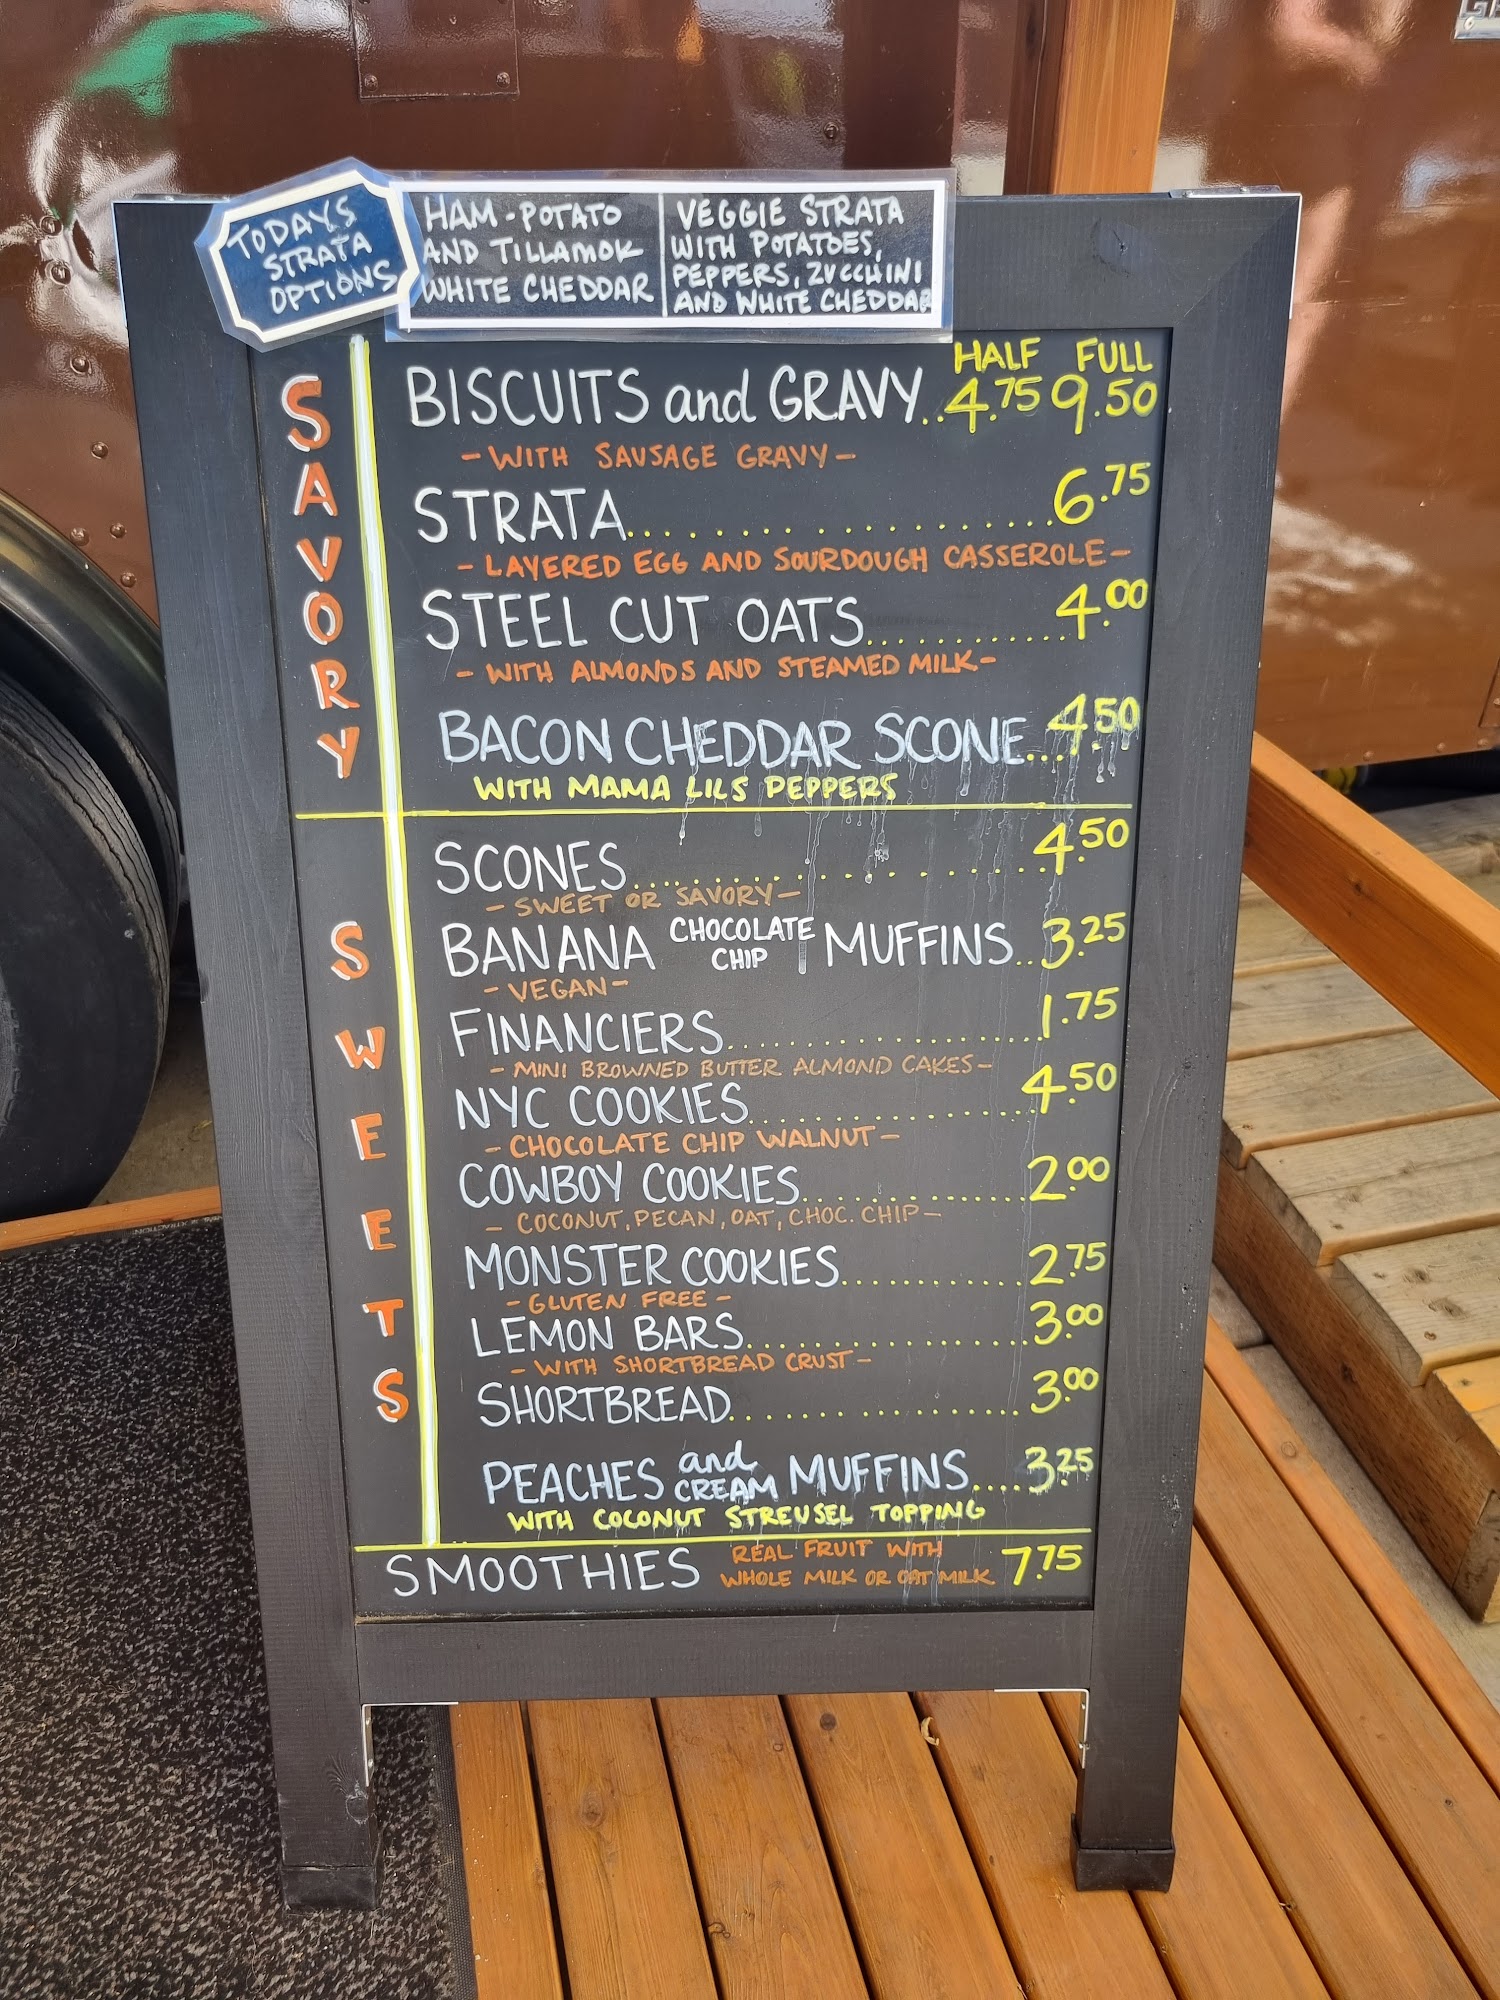 TODAYS
STRATA
OPTIONS
HAM-POTATO
AND TILLAMOK
WHITE CHEDDAR
VEGGIE STRATA
WITH POTATOES,
PEPPERS, ZUCCHINI
AND WHITE CHEDDAR
SAVORY
HALF FULL
BISCUITS and GRAVY..4.75 9.50
- WITH SAUSAGE GRAVY -
STRATA....................6.75
- LAYERED EGG AND SOURDOUGH CASSEROLE -
STEEL CUT OATS............4.00
- WITH ALMONDS AND STEAMED MILK -
BACON CHEDDAR SCONE...4.50
WITH MAMA LILS PEPPERS
SWEETS
SCONES....................4.50
- SWEET OR SAVORY -
BANANA CHOCOLATE CHIP MUFFINS..3.25
- VEGAN -
FINANCIERS....................1.75
- MINI BROWNED BUTTER ALMOND CAKES -
NYC COOKIES....................4.50
- CHOCOLATE CHIP WALNUT -
COWBOY COOKIES................2.00
- COCONUT, PECAN, OAT, CHOC. CHIP -
MONSTER COOKIES............2.75
- GLUTEN FREE -
LEMON BARS..................3.00
- WITH SHORTBREAD CRUST -
SHORTBREAD.................3.00
PEACHES and CREAM MUFFINS....3.25
WITH COCONUT STREUSEL TOPPING
SMOOTHIES REAL FRUIT WITH WHOLE MILK OR OAT MILK 7.75